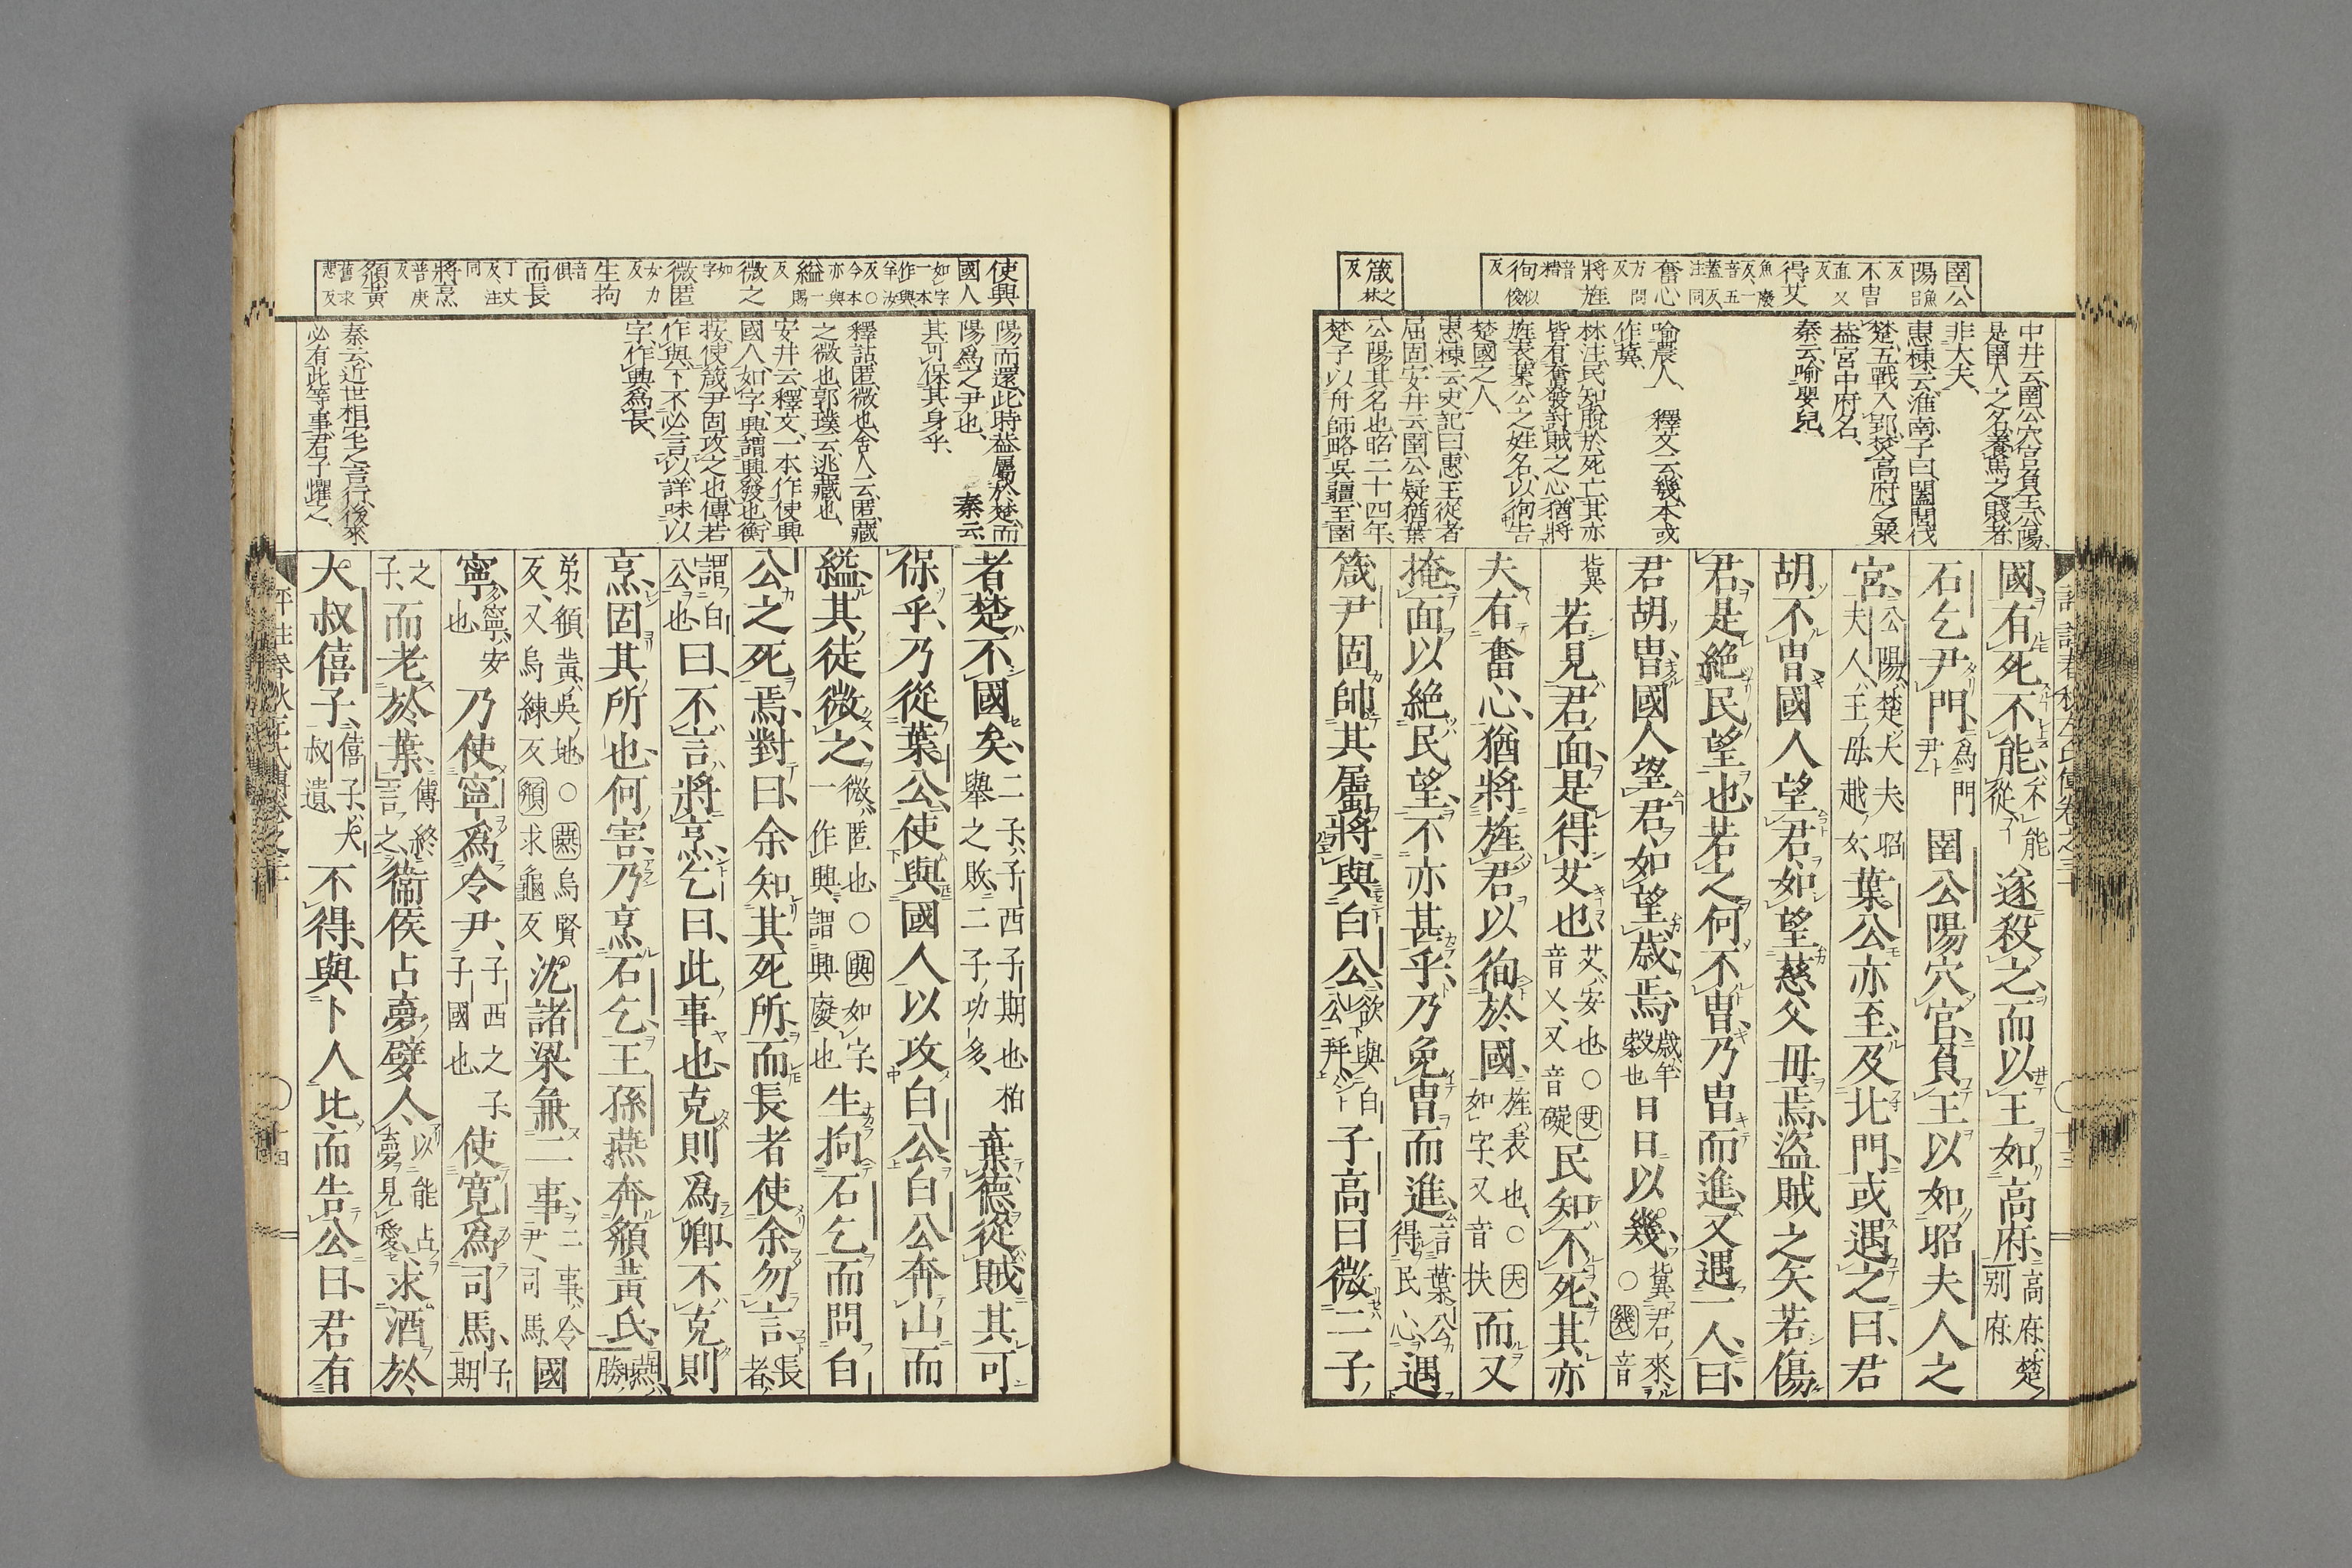 圉公
陽魚呂反
不冑直又反
得艾魚廢反、一音五蓋反、注同
奮心方問反
將旌音精
徇似俊反
箴之林反
中井云、圉公穴宮負王、公陽、
是圉人之名、養馬之賤者、
非大夫、
惠棟云、淮南子曰、闔閭伐
楚、五戰入郢、焚高府之粟、
蓋宮中府名、
秦云、喻嬰兒、
喻農人、　釋文云、幾、本或
作冀、
林注、民知脫於死亡、其亦
皆有奮發討賊之心、猶將
旌表葉公之姓名、以徇告
楚國之人、
惠棟云、史記曰、惠王從者
屈固、安井云、圉公疑猶葉
公陽其名也、昭二十四年、
楚子以舟師略吳疆、至圉
國、有死不能、不能從遂殺之而以王如高府、高府、楚別府
石乞尹門、爲門尹圉公陽穴宮負王以如昭夫人之
宮、公陽、楚大夫、昭夫人、王母、越女、葉公亦至、及北門、或遇之曰、君
胡不冑、國人望君、如望慈父母焉、盜賊之矢若傷
君、是絕民望也、若之何不冑、乃冑而進、又遇一人、曰、
君胡冑、國人望君、如望歲焉、歲、年穀也日日以幾、冀君來、○幾音
冀若見君面、是得艾也、艾、安也、○艾音乂、又音礙民知不死、其亦
夫有奮心、猶將旌君以徇於國、旌、表也、○夫如字、又音扶而又
掩面以絕民望、不亦甚乎、乃免冑而進、言葉公得民心、遇
箴尹固帥其屬、將與白公、欲與白公幷子高曰、微二子
使與
國人如字、一本作興
縊一賜反
微之
微匿如字、女力反
生拘音俱
而長丁丈反、注同
將烹普庚反
頯黃舊求悲反
陽而還、此時蓋屬於楚、而
陽爲之尹也、　秦云、
其可保其身乎、
釋詁、匿、微也、舍人云、匿、藏
之微也、郭璞云、逃藏也、
安井云、釋文、一本作使興
國人如字、興謂興發也、衡
按、使箴尹固攻之也、傳若
作與、下不必言以、詳味以
字、作興爲長、
秦云、近世相宅之言行、後來
必有此等事、君子懼之、
者、楚不國矣、二子、子西子期也、柏舉之敗、二子功多、棄德從賊、其可
保乎、乃從葉公、使與國人以攻白公、白公奔山而
縊、其徒微之、微、匿也、○與如字、一作興、謂興廢也生拘石乞、而問白
公之死焉、對曰、余知其死所、而長者使余勿言、長者、
謂白公也曰、不言、將烹、乞曰、此事也、克則爲卿、不克則
烹、固其所也、何害、乃烹石乞、王孫燕奔頯黃氏、燕、勝
弟、頯黃、吳地、○燕烏賢反、又烏練反、頯求龜反沈諸梁兼二事、二事、令尹、司馬、國
寧、寧、安也乃使寧爲令尹、子西之子子國也使寬爲司馬、子期
之子、而老於葉、傳終言之、衞侯占夢嬖人、以能占夢見愛、求酒於
大叔僖子、僖子、大叔遺、不得、與卜人比、而告公曰、君有